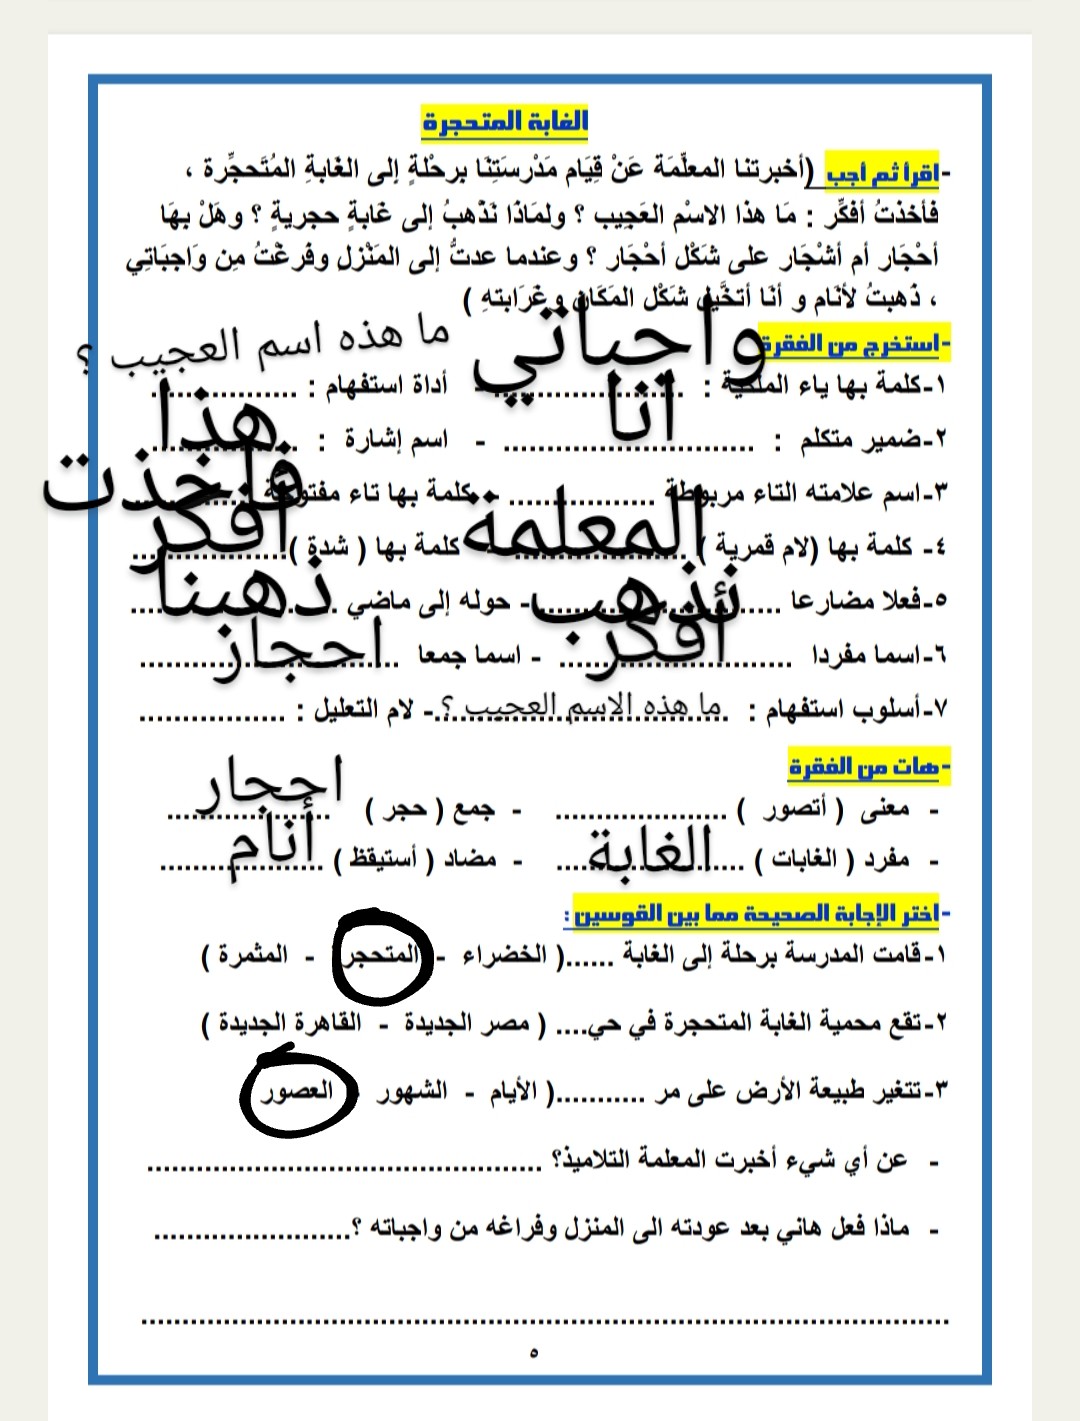 الغابة المتحجرة
-اقرأ ثم أجب (أخبرتنا المعلّمَة عَنْ قِيَام مَدْرسَتِنَا برحْلةٍ إلى الغَابةِ المُتَحجِّرة ،
فأخذتُ أفكِّر : مَا هذا الاسْم العَجِيب ؟ ولمَاذَا نَذْهبُ إلى غَابةٍ حجريةٍ ؟ وهَلْ بهَا
أحْجَار أم أشْجَار على شَكْل أحْجَار ؟ وعندما عدتُّ إلى المَنْزلِ وفَرغْتُ مِن وَاجبَاتِي
، ذَهبتُ لأنَام و أنَا أتخَّيل شَكْل المَكَان وغَرَابتهِ )
-استخرج من الفقرة
واجباتي
ما هذه اسم العجيب ؟
١-كلمة بها ياء الملكية : .................... - أداة استفهام : ................
أنا
هذا
٢-ضمير متكلم : ........................... - اسم إشارة : ................
فأخذت
٣-اسم علامته التاء مربوطة ................ - كلمة بها تاء مفتوحة ................
المعلمة
أفكر
٤- كلمة بها (لام قمرية ) .................... - كلمة بها ( شدة ) .................
نذهب
ذهبنا
٥-فعلا مضارعا ........................... - حوله إلى ماضي ......................
أفكر
احجار
٦-اسما مفردا ......................... - اسما جمعا ............................
٧-أسلوب استفهام : ما هذه الاسم العجيب ؟ - لام التعليل : ................
-هات من الفقرة
احجار
- معنى ( أتصور ) ................... - جمع ( حجر ) ..................
الغابة
أنام
- مفرد ( الغابات ) .................... - مضاد ( أستيقظ ) ..................
-اختر الإجابة الصحيحة مما بين القوسين :
١-قامت المدرسة برحلة إلى الغابة ......( الخضراء - المتحجر - المثمرة )
٢-تقع محمية الغابة المتحجرة في حي.... ( مصر الجديدة - القاهرة الجديدة )
٣-تتغير طبيعة الأرض على مر ...........( الأيام - الشهور العصور
- عن أي شيء أخبرت المعلمة التلاميذ؟ ............................................
- ماذا فعل هاني بعد عودته الى المنزل وفراغه من واجباته ؟......................
..........................................................................................
٥